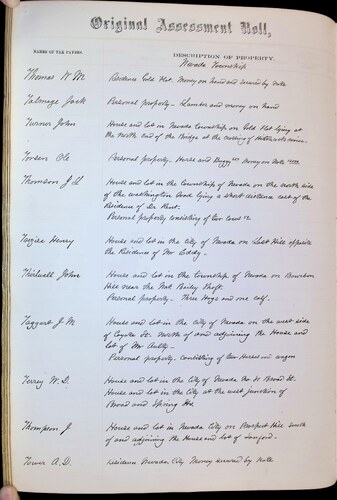 Original Assessment Roll,
NAMES OF TAX PAYERS.
DESCRIPTION OF PROPERTY.
Nevada Township
Thomas W M
Residence Gold Flat. Money on hand and secured by Note
Talmage Jack
Personal property - Lumber and money on hand
Turner John
House and lot in Nevada township on Gold Flat lying at
the North end of the Bridge at the crossing of
Ole
Personal property. Horse and Buggy money on Note
Thomson J
House and lot in the township of Nevada on the north side
of the Washington road lying a short distance east of the
Residence of Dr Kent.
Personal property consisting of two cows
Henry
House and lot in the City of Nevada on Lost Hill opposite
the Residence of Mr Eddy.
Thirlwall John
House and lot in the township of Nevada on Bourbon
Hill near the Nat Bailey Shaft.
Personal property. Three Hogs and one calf.
Taggart J. M
House and lot in the City of Nevada on the west side
of Coyote St. North of and adjoining the House and
lot of Mr
Personal property consisting of two Horses and wagon
Terry W. D.
House and lot in the City of Nevada No Broad St.
House and lot in the City at the west junction of
Broad and Spring Sts.
Thompson J
House and lot in Nevada City on Prospect Hill south
of and adjoining the House and lot of Sanford.
Tower A. D.
Residence Nevada City Money secured by Note